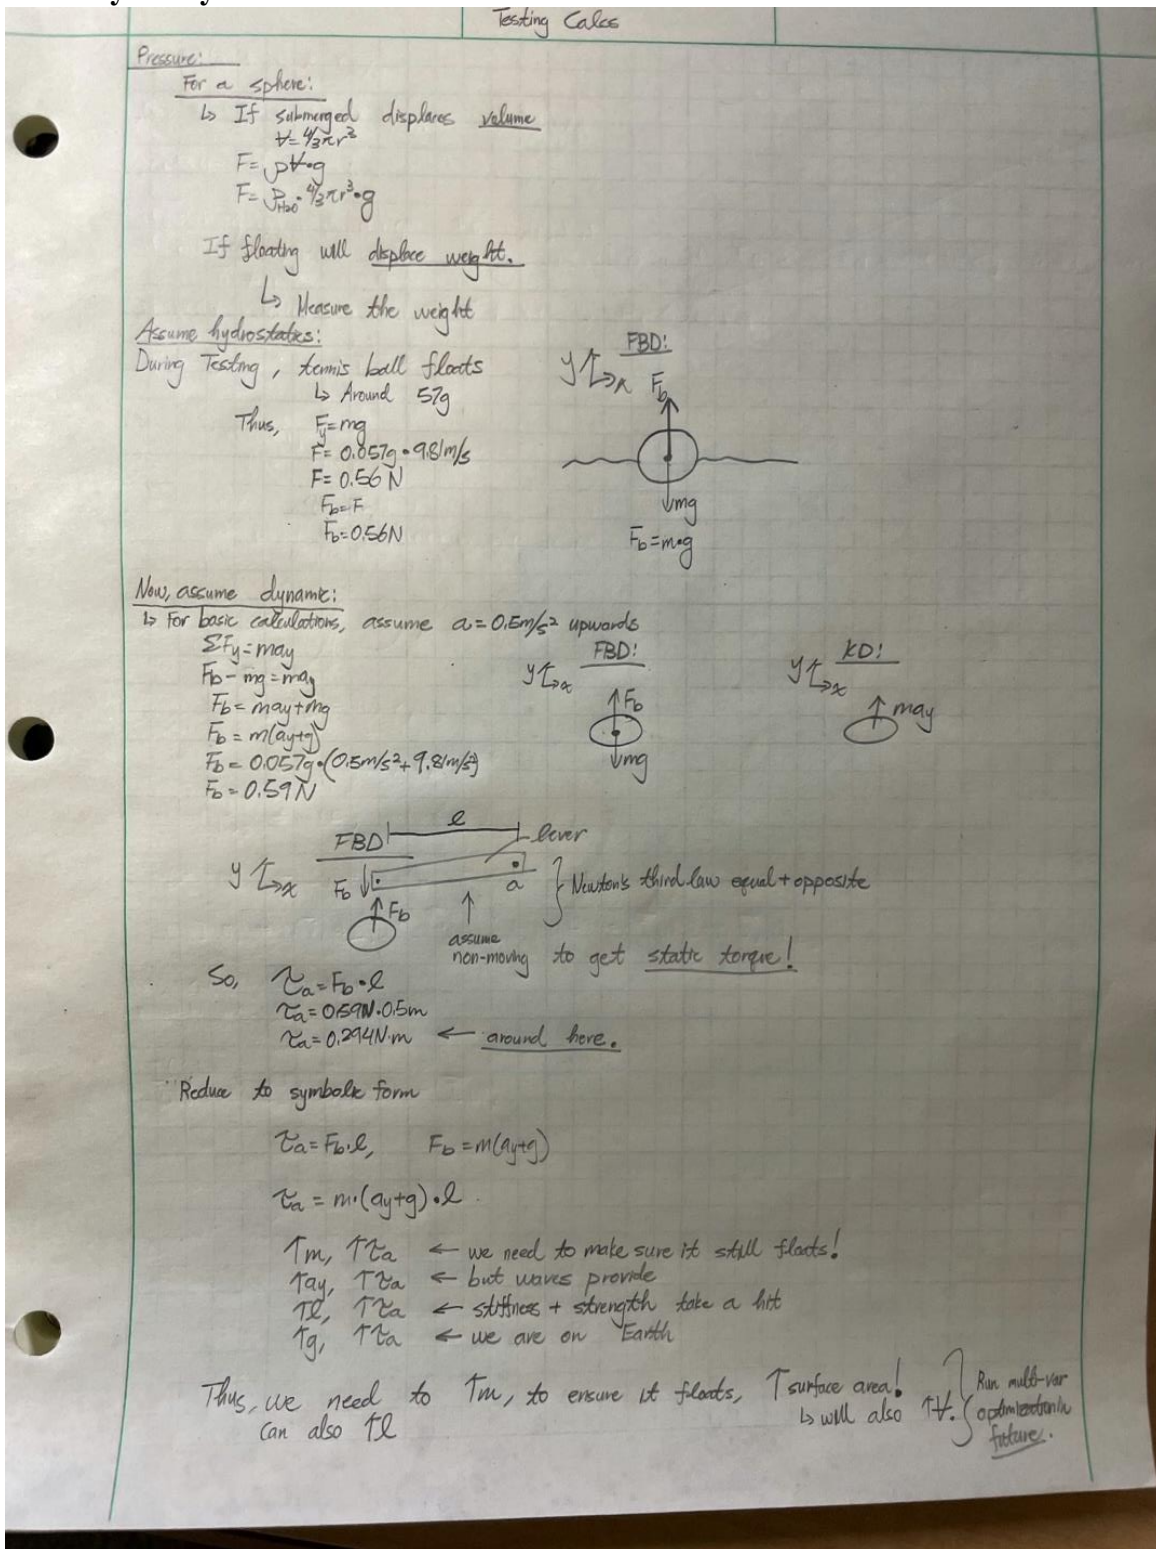 Testing Calcs
Pressure:
For a sphere:
↳ If submerged displaces volume
V = 4/3πr³
F = ρV•g
F = ρH2O • 4/3πr³•g
If floating will displace weight.
↳ Measure the weight
Assume hydrostatics:
During Testing, tennis ball floats
↳ Around 57g
Thus, Fy = mg
F = 0.057g • 9.81m/s
F = 0.56 N
Fb = F
Fb = 0.56N
FBD:
y x
Fb
mg
Fb = m•g
Now, assume dynamic:
↳ For basic calculations, assume a = 0.5m/s² upwards
ΣFy = may
Fb - mg = may
Fb = may + mg
Fb = m(ay+g)
Fb = 0.057g•(0.5m/s² + 9.81m/s²)
Fb = 0.59N
FBD:
y x
Fb
mg
KD:
y x
may
FBD
l
lever
y x
Fb
Fb
a
Newton's third law equal + opposite
assume
non-moving to get static torque!
So, τa = Fb • l
τa = 0.59N•0.5m
τa = 0.294N•m ← around here.
Reduce to symbolic form
τa = Fb•l, Fb = m(ay+g)
τa = m•(ay+g)•l
↑m, ↑τa ← we need to make sure it still floats!
↑ay, ↑τa ← but waves provide
↑l, ↑τa ← stiffness + strength take a hit
↑g, ↑τa ← we are on Earth
Thus, we need to ↑m, to ensure it floats, ↑surface area!
can also ↑l
↳ will also ↑V.
Run multi-var
optimization in
future.